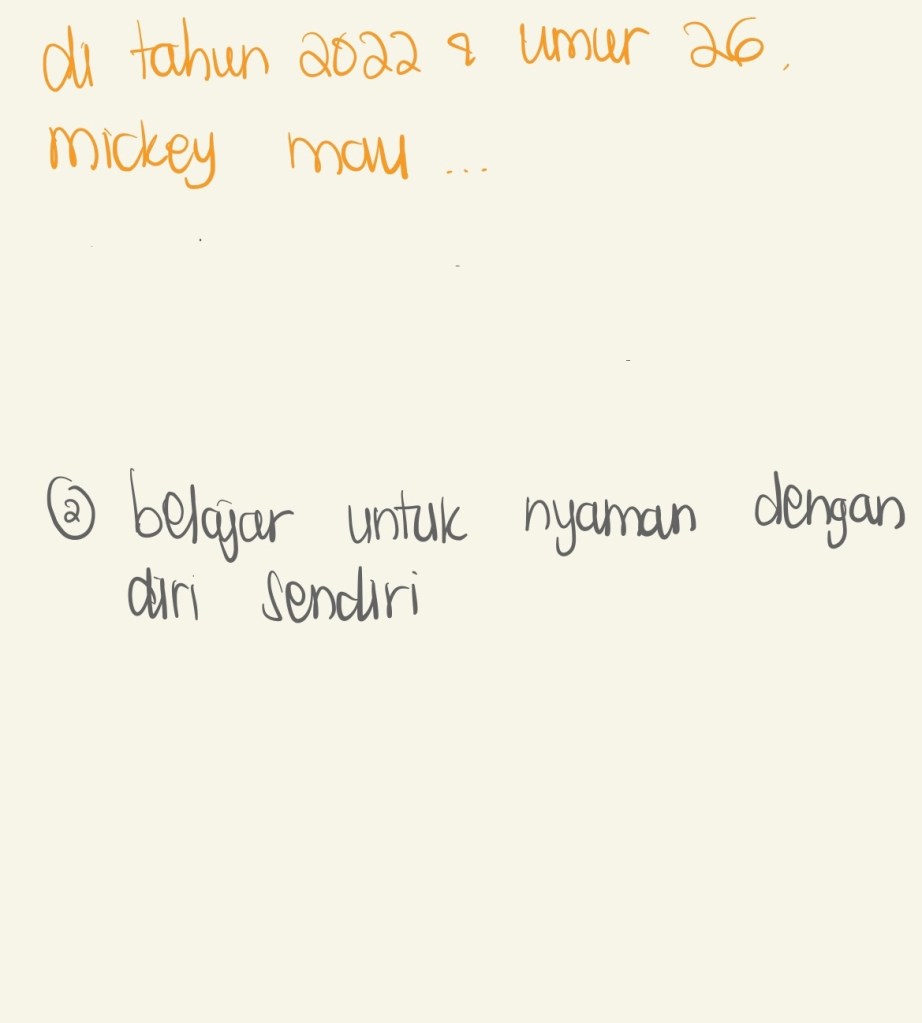 di tahun 2022 & umur 26,
mickey mau ...
② belajar untuk nyaman dengan
diri sendiri